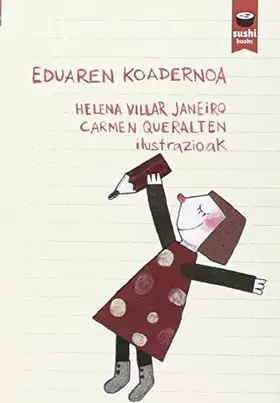 sushi
books
EDUAREN KOADERNOA
HELENA VILLAR JANEIRO
CARMEN QUERALTEN
ilustrazioak